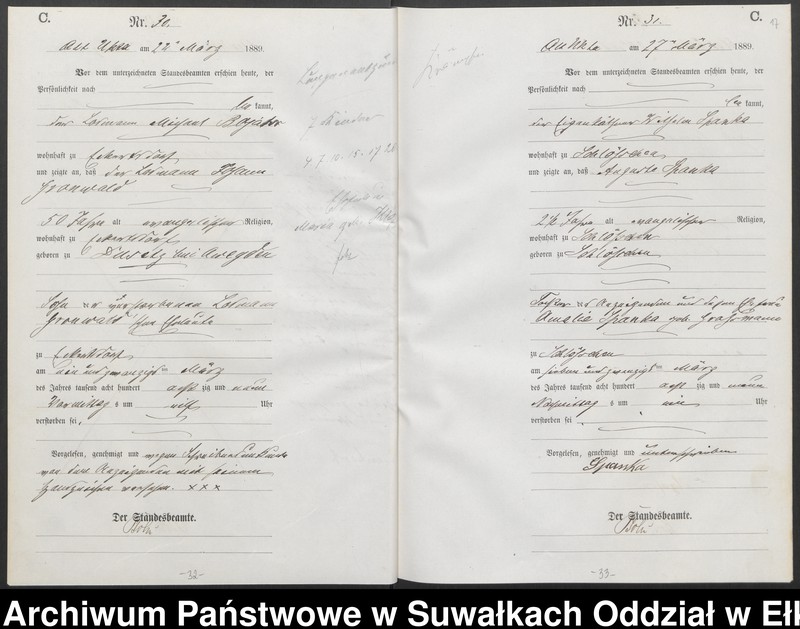 C.
Nr. 30.
Alt Ukta am 22ᵗ März 1889.
Vor dem unterzeichneten Standesbeamten erschien heute, der
Persönlichkeit nach
be kannt,
der Losmann Michael
wohnhaft zu Eckertsdorf
und zeigte an, daß der Losmann Johann
Gronwald
50 Jahre alt evangelischer Religion,
wohnhaft zu Eckertsdorf
geboren zu bei Awegden
Sohn der verstorbenen Losmann
Gronwald'schen Eheleute
zu Eckertsdorf
am ein und zwanzigsten März
des Jahres tausend acht hundert acht zig und neun
Vormittags um elf Uhr
verstorben sei.
Vorgelesen, genehmigt und wegen Schreibensunkunde
von dem Anzeigenden mit seinem
Handzeichen versehen. × × ×
Der Standesbeamte.
-32-
Lungenentzündung
7 Kinder
4. 7. 10. 15. 17 20
Ehefrau
Maria geb.
C.
Nr. 31.
Alt Ukta am 27ᵗ März 1889.
Vor dem unterzeichneten Standesbeamten erschien heute, der
Persönlichkeit nach
be kannt,
der Eigenkäthner Wilhelm Spanka
wohnhaft zu Schlößchen
und zeigte an, daß Auguste Spanka
2½ Jahre alt evangelischer Religion,
wohnhaft zu Schlößchen
geboren zu Schlößchen
Tochter des Anzeigenden und dessen Ehefrau
Amalie Spanka geb. Großmann
zu Schlößchen
am sieben und zwanzigsten März
des Jahres tausend acht hundert acht zig und neun
Nachmittags um ein Uhr
verstorben sei.
Vorgelesen, genehmigt und unterschrieben
Spanka
Der Standesbeamte.
-33-
Archiwum Państwowe w Suwałkach Oddział w Ełk